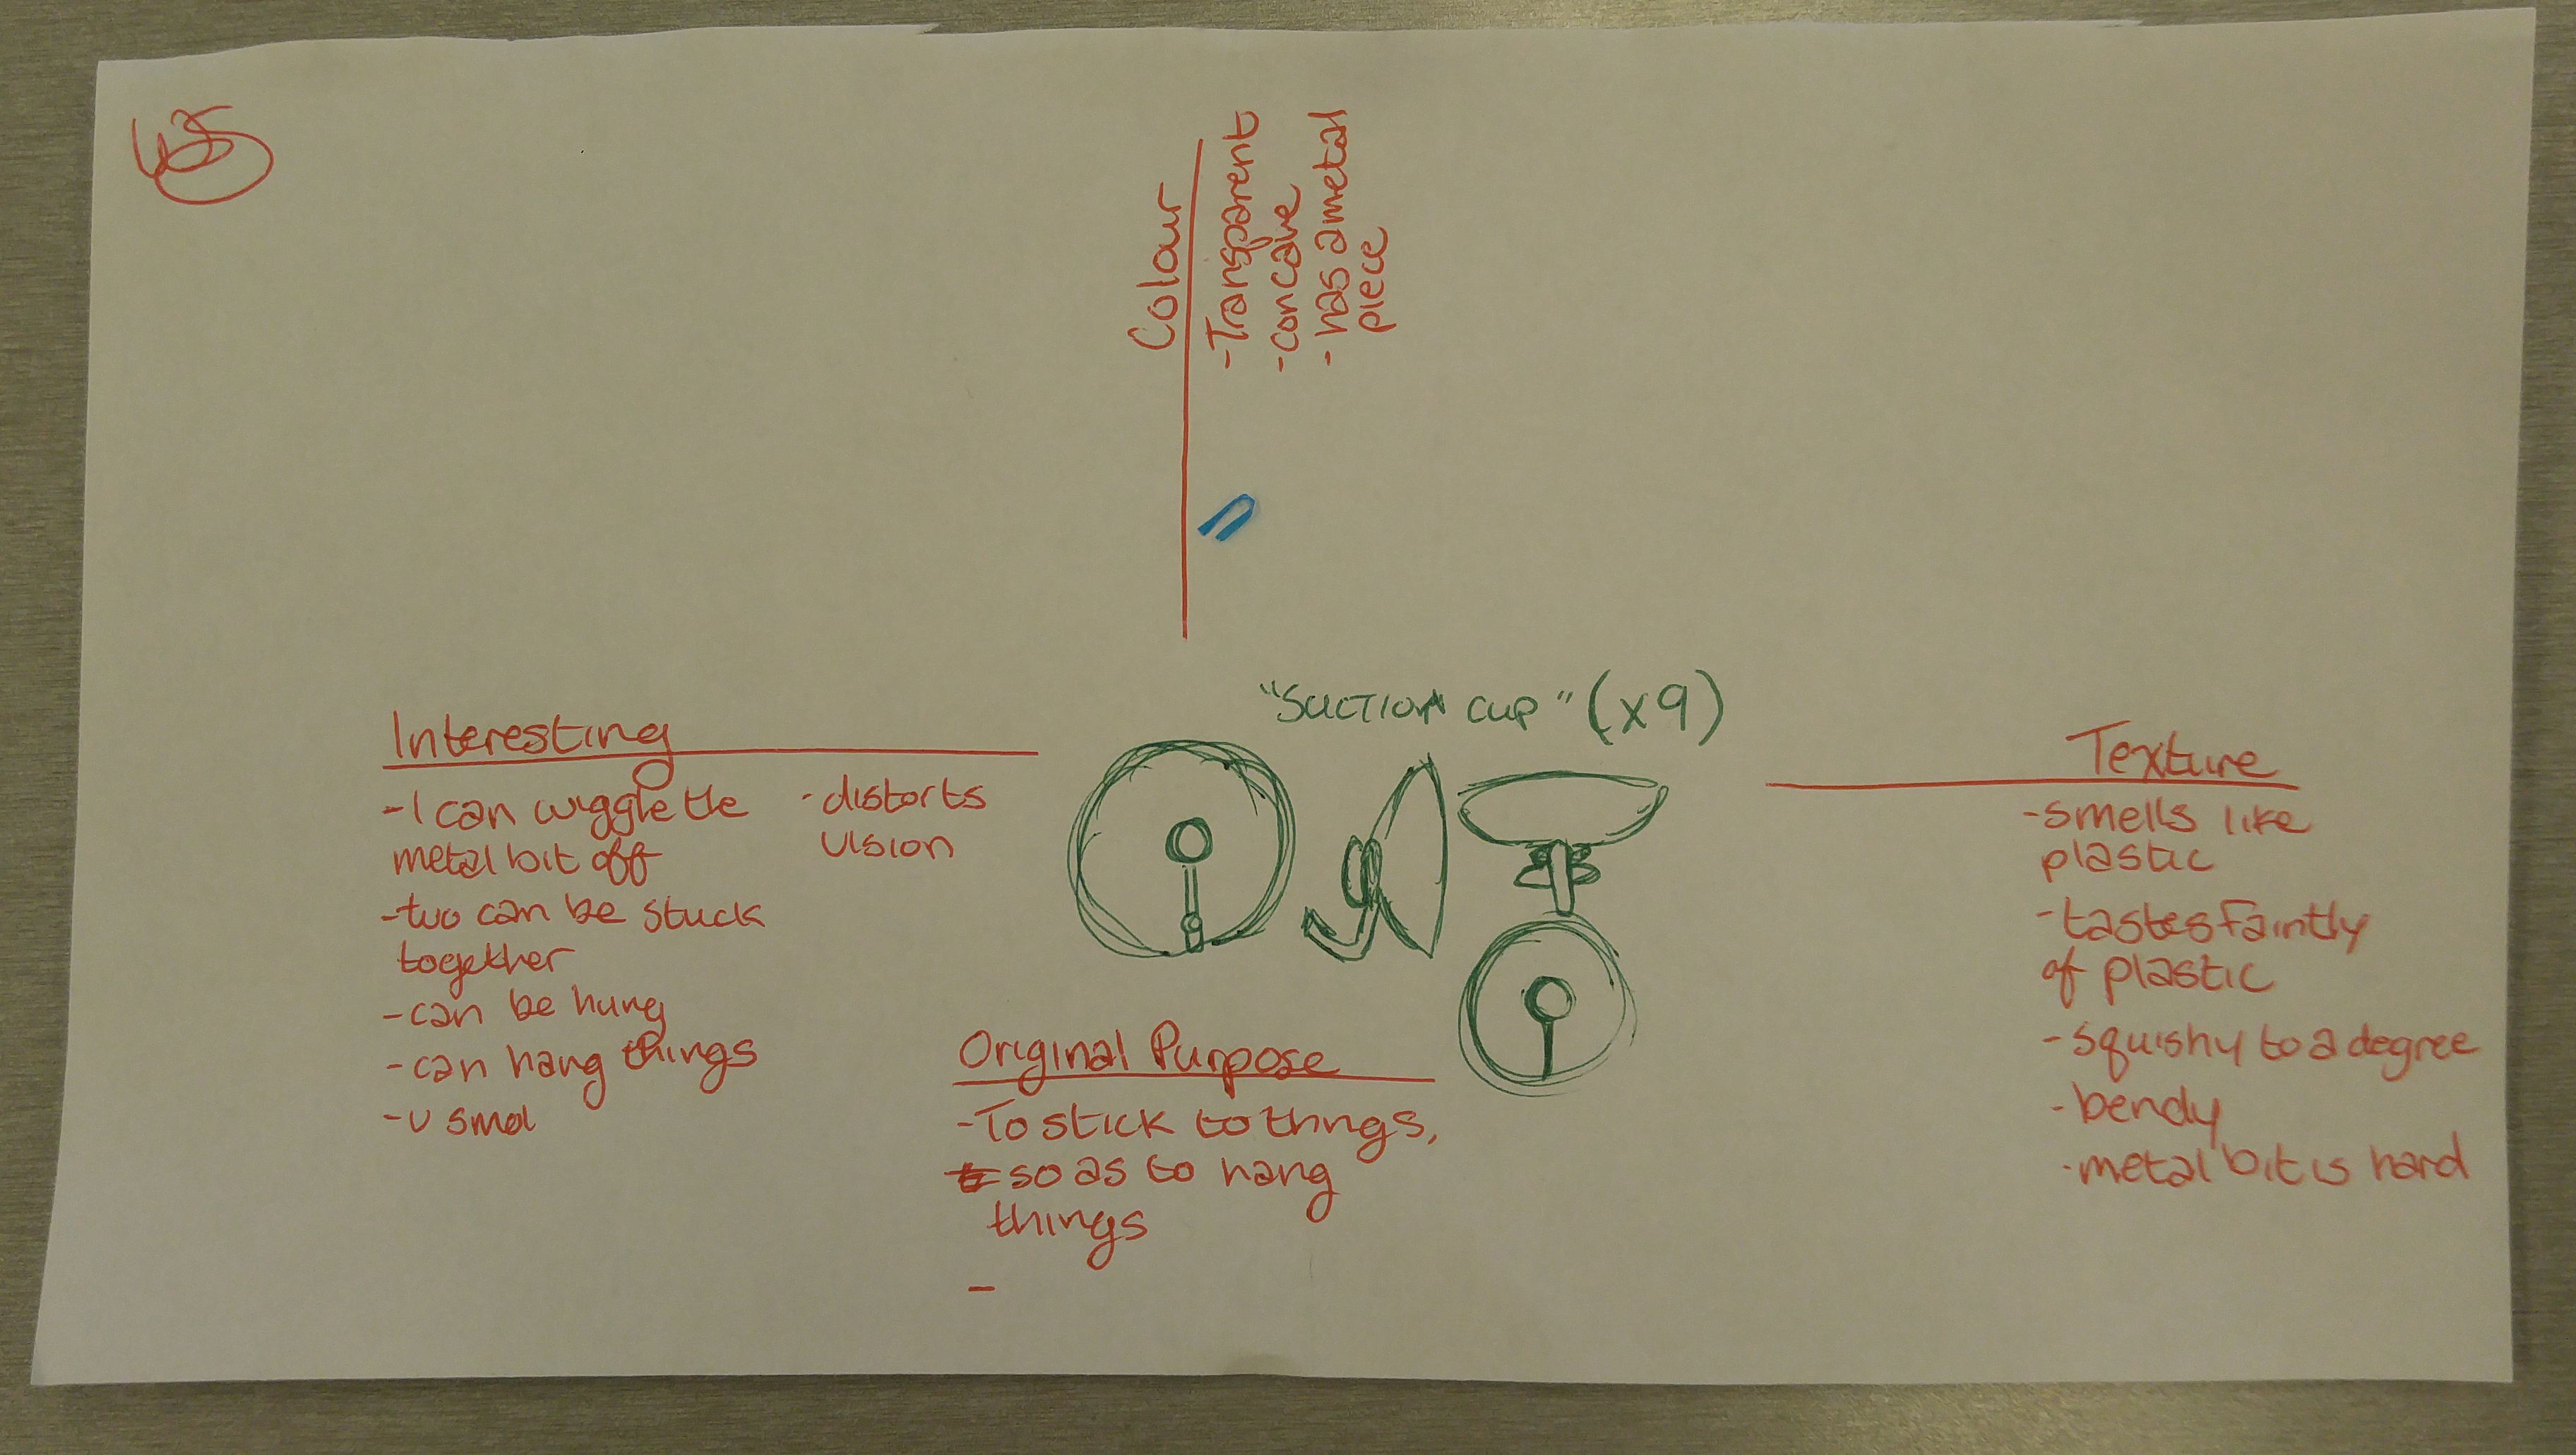 Colour
-Transparent
-concave
-has a metal
piece
"Suction cup" (x9)
Interesting
-I can wiggle the
metal bit off
-two can be stuck
together
-can be hung
-can hang things
-v smol
-distorts
vision
Original Purpose
-To stick to things,
so as to hang
things
-
Texture
-smells like
plastic
-tastes faintly
of plastic
-squishy to a degree
-bendy
-metal bit is hard